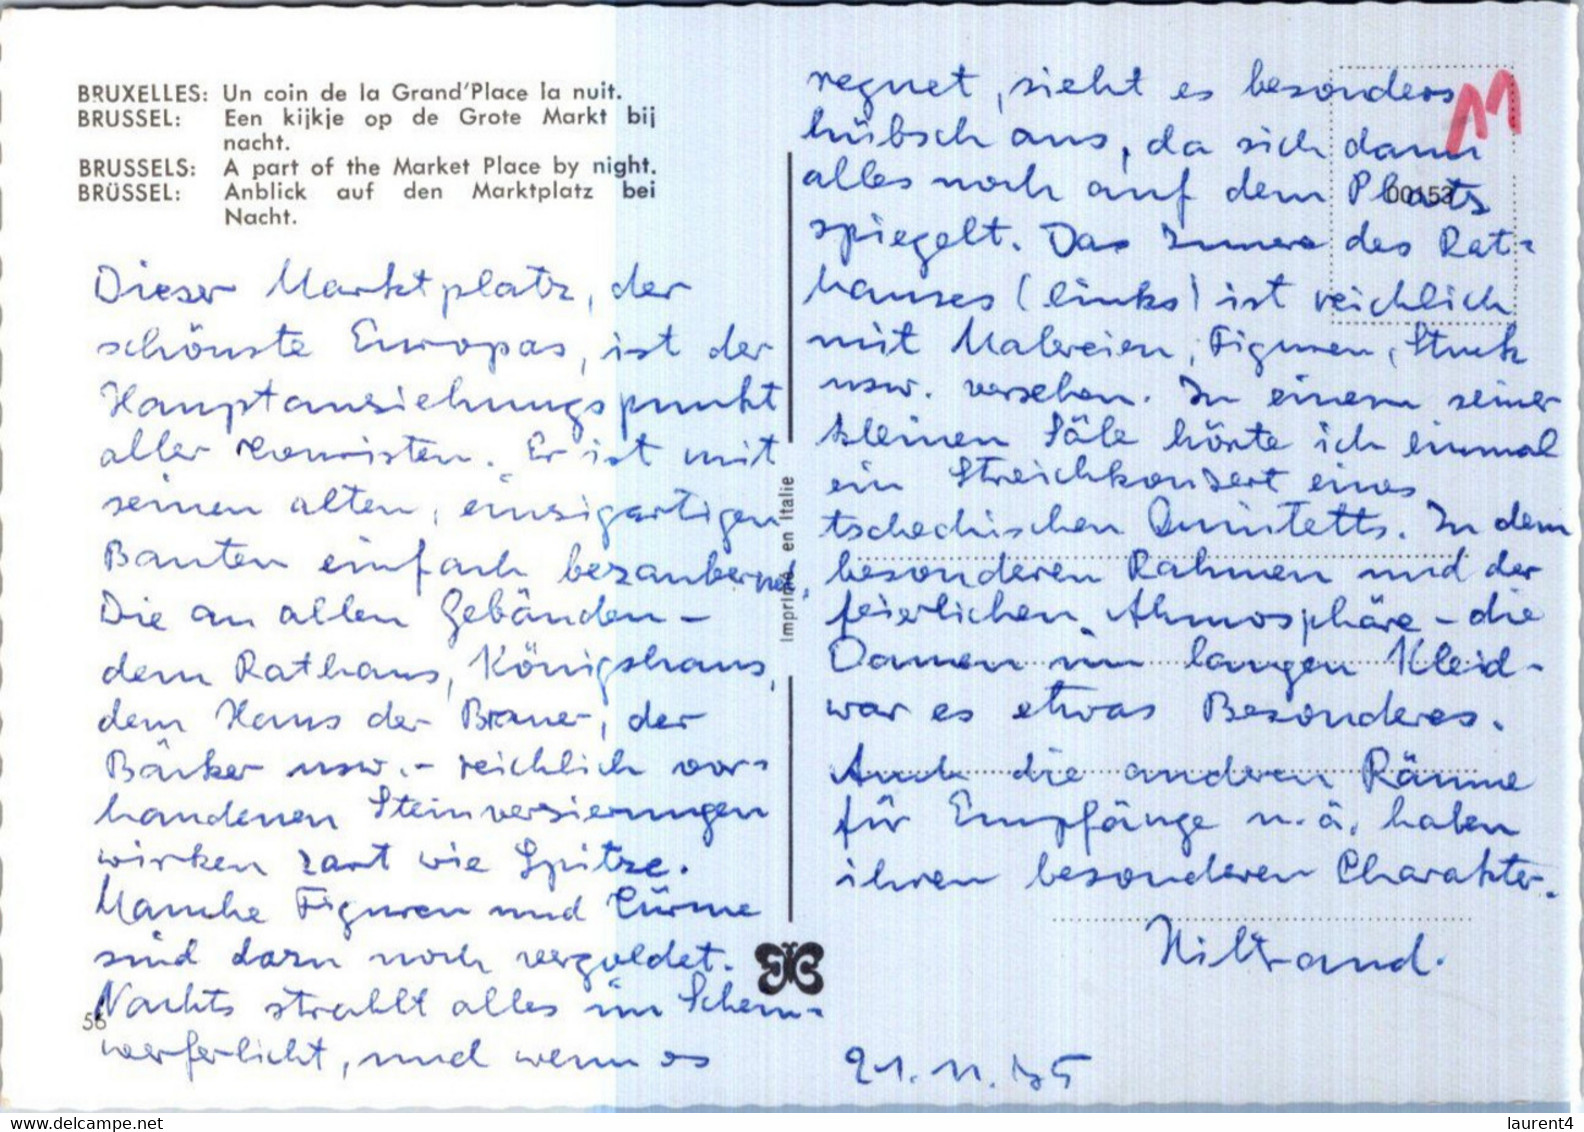 BRUXELLES: Un coin de la Grand'Place la nuit.
BRUSSEL: Een kijkje op de Grote Markt bij
nacht.
BRUSSELS: A part of the Market Place by night.
BRÜSSEL: Anblick auf den Marktplatz bei
Nacht.
Dieser Marktplatz, der
schönste Europas, ist der
Hauptanziehungspunkt
aller Touristen. Er ist mit
seinen alten, einzigartigen
Bauten einfach bezaubernd.
Die an allen Gebäuden –
dem Rathaus, Königshaus,
dem Haus der Brauer, der
Bäcker usw. – reichlich vor=
handenen Steinverzierungen
wirken zart wie Spitze.
Manche Figuren und Türme
sind dazu noch vergoldet.
Nachts strahlt alles im Schein=
werferlicht, und wenn es
56
Imprimé en Italie
regnet, sieht es besonders
hübsch aus, da sich dann
alles noch auf dem Platz
spiegelt. Das Innere des Rat=
hauses (links) ist reichlich
mit Malereien, Figuren, Stuck
usw. versehen. In einem seiner
kleinen Säle hörte ich einmal
ein Streichkonzert eines
tschechischen Quintetts. In dem
besonderen Rahmen und der
feierlichen Atmosphäre – die
Damen im langen Kleid –
war es etwas Besonderes.
Auch die anderen Räume
für Empfänge u. ä. haben
ihren besonderen Charakter.
Hiltraud.
21. 11.
11
00153
delcampe.net
laurent4